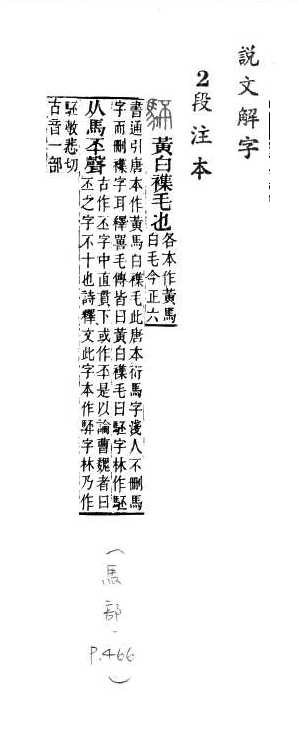 說文解字
2段注本
黃白襍毛也
各本作黃馬
白毛今正六
書通引唐本作黃馬白襍毛此唐本衍馬字淺人不刪馬
字而刪襍字耳釋嘼毛傳皆曰黃白襍毛曰駓字林作駓
从馬丕聲
古作丕字中直貫下或作㔻是以論曹魏者曰
丕之字不十也詩釋文此字本作駓字林乃作
駓敷悲切
古音一部
(馬部.P.466)